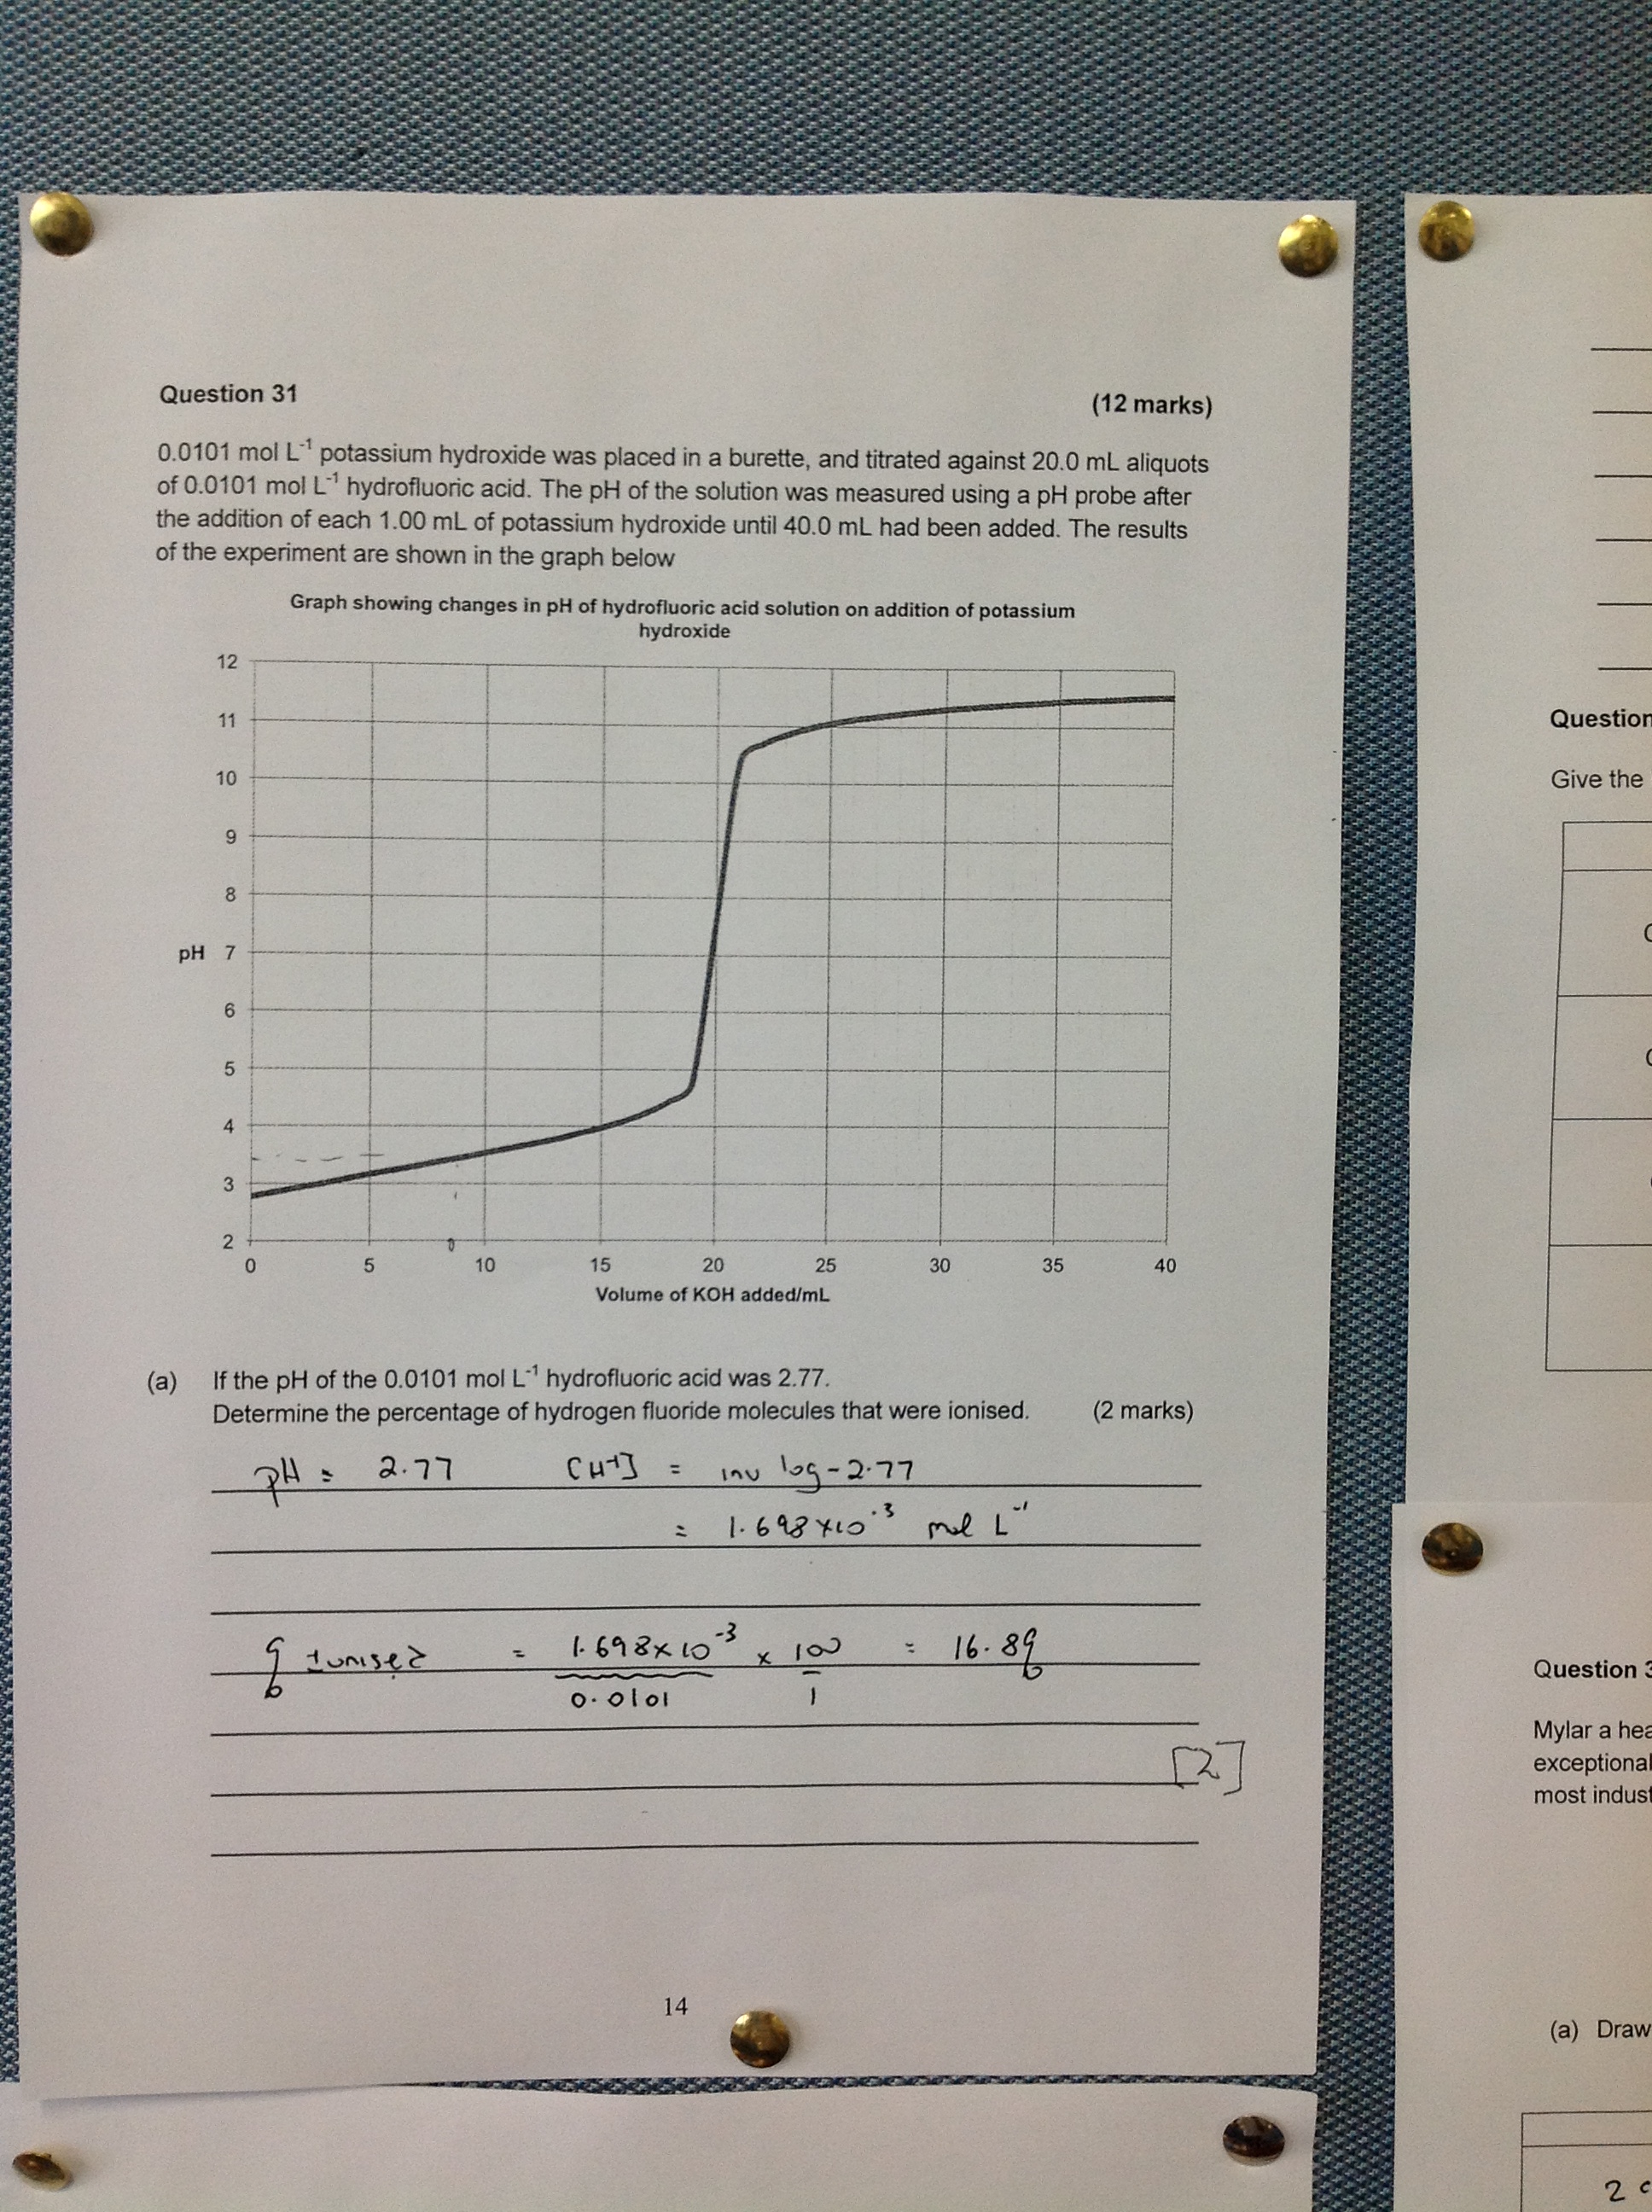 Question 31
(12 marks)
0.0101 mol L⁻¹ potassium hydroxide was placed in a burette, and titrated against 20.0 mL aliquots
of 0.0101 mol L⁻¹ hydrofluoric acid. The pH of the solution was measured using a pH probe after
the addition of each 1.00 mL of potassium hydroxide until 40.0 mL had been added. The results
of the experiment are shown in the graph below
Graph showing changes in pH of hydrofluoric acid solution on addition of potassium
hydroxide
12
11
10
9
8
pH 7
6
5
4
3
2
0 5 10 15 20 25 30 35 40
Volume of KOH added/mL
(a) If the pH of the 0.0101 mol L⁻¹ hydrofluoric acid was 2.77.
Determine the percentage of hydrogen fluoride molecules that were ionised. (2 marks)
pH = 2.77 [H⁺] = inv log-2.77
= 1.698×10⁻³ mol L⁻¹
% Ionised = 1.698×10⁻³ × 100 = 16.8%
0.0101 1
[2]
14
Question
Give the
Question 3
Mylar a hea
exceptional
most indust
(a) Draw
2